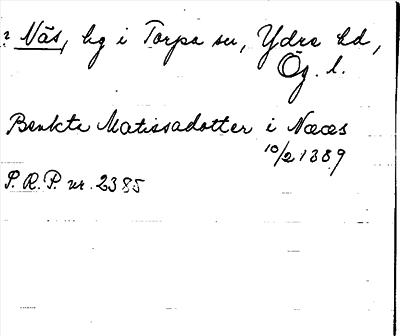 Näs, hg i Torpa sn, Ydre hd,
Ög. l.
Benkte Matissadotter i Næs
10/2 1389
P. R. P. nr. 2385